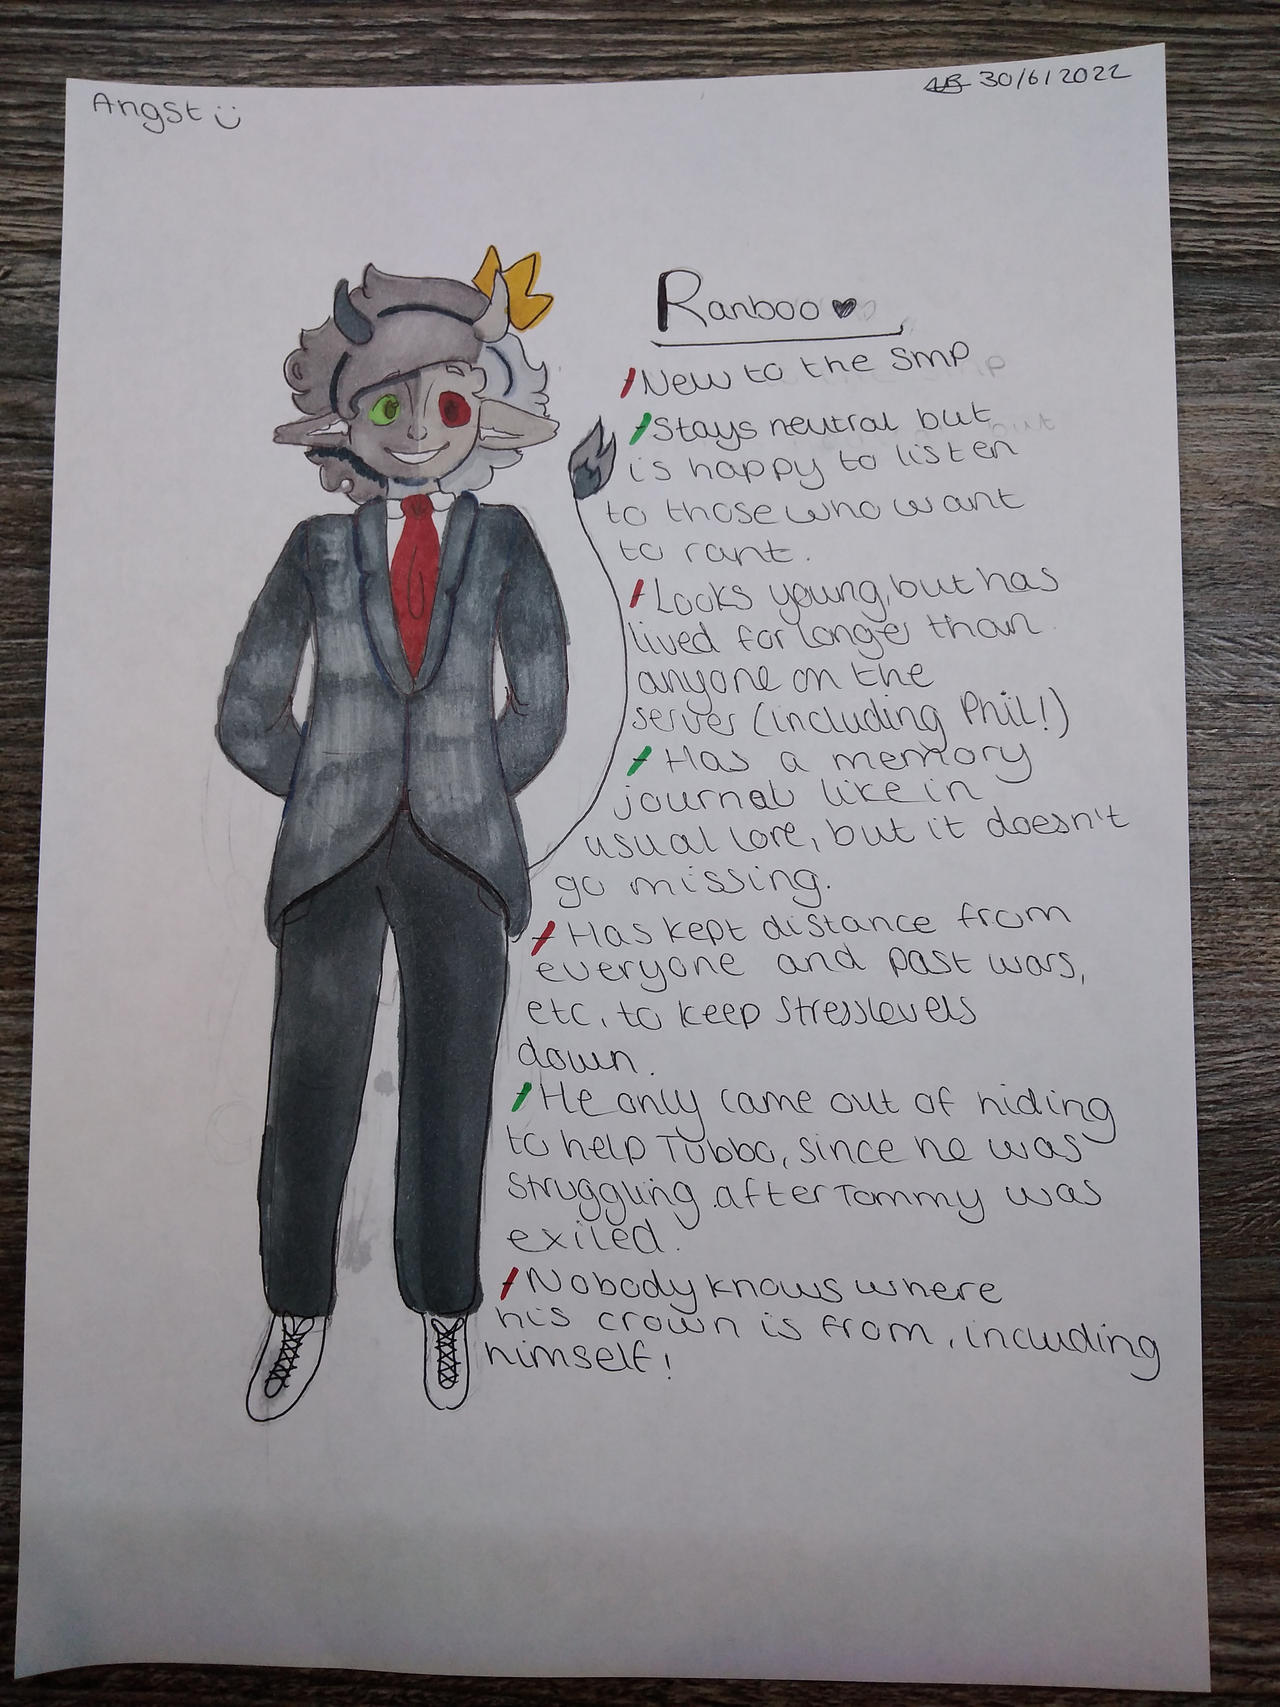 Angst
30/6/2022
Ranboo
New to the SMP
Stays neutral but
is happy to listen
to those who want
to rant.
Looks young, but has
lived for longer than
anyone on the
server (including Phil!)
Has a memory
journal like in
usual lore, but it doesn't
go missing.
Has kept distance from
everyone and past wars,
etc. to keep stresslevels
down.
He only came out of hiding
to help Tubbo, since he was
struggling after Tommy was
exiled.
Nobody knows where
his crown is from, including
himself!